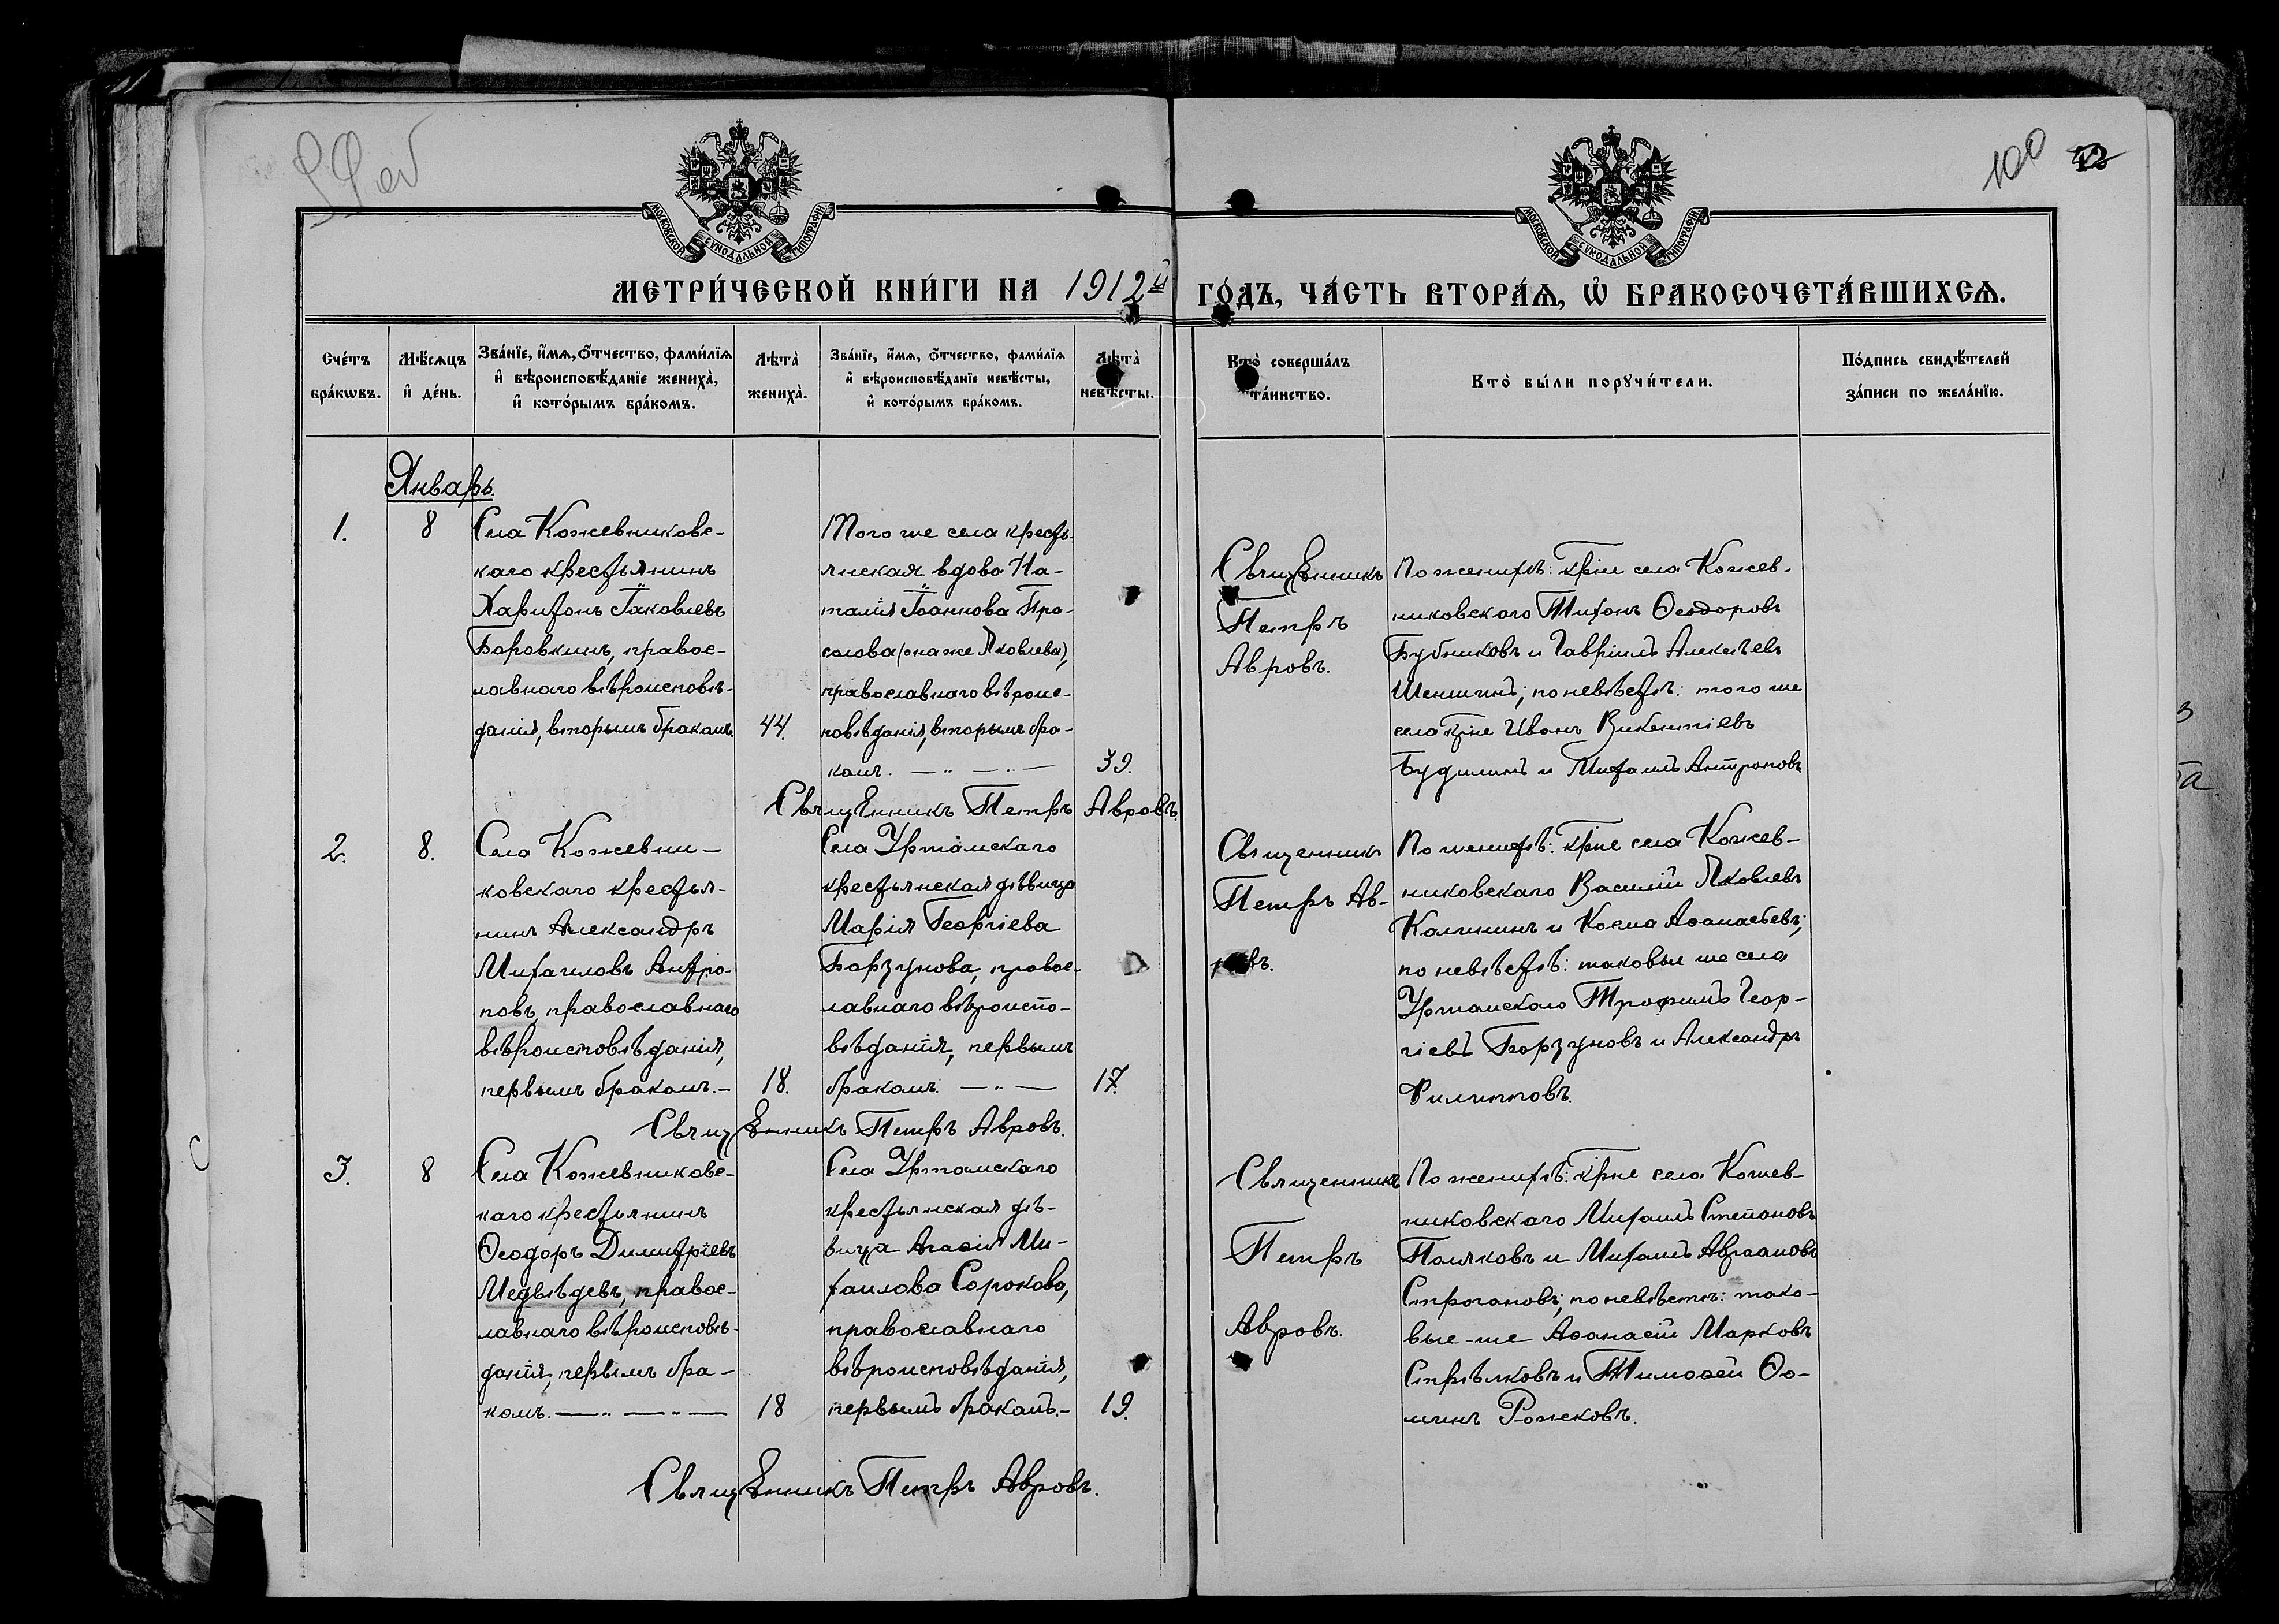 100
МОСКОВСКОЙ СУНОДАЛЬНОЙ ТИПОГРАФІИ
МОСКОВСКОЙ СУНОДАЛЬНОЙ ТИПОГРАФІИ
МЕТРИ́ЧЕСКОЙ КНИ́ГИ НА 1912й
ГО́ДЪ, ЧА́СТЬ ВТОРА́Ѧ, Ѽ БРАКОСОЧЕТА́ВШИХСѦ.
Сче́тъ бра́кѡвъ.
Мѣ́сѧцъ и҆ де́нь.
Зва́нїе, и҆́мѧ, ѻ҆́тчество, фами́лїѧ
и҆ вѣроисповѣ́данїе жениха̀,
и҆ кото́рымъ бра́комъ.
Лѣта̀ жениха̀.
Зва́нїе, и҆́мѧ, ѻ҆́тчество, фами́лїѧ
и҆ вѣроисповѣ́данїе невѣ́сты,
и҆ кото́рымъ бра́комъ.
Лѣта̀ невѣ́сты.
Кто̀ соверша́лъ
та́инство.
Кто̀ бы́ли порꙋчи́тели.
По́дпись свидѣ́телей
за́писи по жела́нїю.
Январь.
1.
8
Села Кожевниковс-
каго крестьянинъ
Харитонъ Іаковлевъ
Боровкинъ, правос-
лавнаго вѣроисповѣ-
данія, вторымъ бракомъ
44.
Того же села кресть-
янская вдова На-
талія Іоаннова Про-
солова (она же Яковлева),
православнаго вѣроис-
повѣданія, вторымъ бра-
комъ. — „ — „ —
39.
Священникъ
Петръ
Авровъ.
По женихѣ: кр̃не села Кожев-
никовскаго Тихонъ Ѳеодоровъ
Бубниковъ и Гавріилъ Алексѣевъ
Шеншинъ; по невѣстѣ: того же
села кр̃не Иванъ Викентіевъ
Будилинъ и Михаилъ Антроповъ
Священникъ Петръ Авровъ.
2.
8.
Села Кожевни-
ковскаго крестья-
нинъ Александръ
Михаиловъ Антро-
повъ, православнаго
вѣроисповѣданія,
первымъ бракомъ. —
18.
Села Уртамскаго
крестьянская дѣвица
Марія Георгіева
Борзунова, правос-
лавнаго вѣроиспо-
вѣданія, первымъ
бракомъ. — „ —
17.
Священникъ
Петръ Ав-
ровъ.
По женихѣ: кр̃не села Кожев-
никовскаго Василій Яковлевъ
Калининъ и Косма Аѳанасьевъ;
по невѣстѣ: таковые же села
Уртамскаго Трофимъ Геор-
гіевъ Борзуновъ и Александръ
Филипповъ.
Священникъ Петръ Авровъ.
3.
8
Села Кожевниковс-
каго крестьянинъ
Ѳеодоръ Димитріевъ
Медвѣдевъ, правос-
лавнаго вѣроисповѣ-
данія, первымъ бра-
комъ. — „ — „ —
18
Села Уртамскаго
крестьянская дѣ-
вица Агаѳія Ми-
хаилова Сорокова,
православнаго
вѣроисповѣданія,
первымъ бракомъ. —
19.
Священникъ
Петръ
Авровъ.
По женихѣ: кр̃не села Кожев-
никовскаго Михаилъ Степановъ
Поляковъ и Михаилъ Авраамовъ
Строгановъ; по невѣстѣ: тако-
вые-же Аѳанасій Марковъ
Стрѣлковъ и Тимоѳей Ѳо-
минъ Рожковъ.
Священникъ Петръ Авровъ.